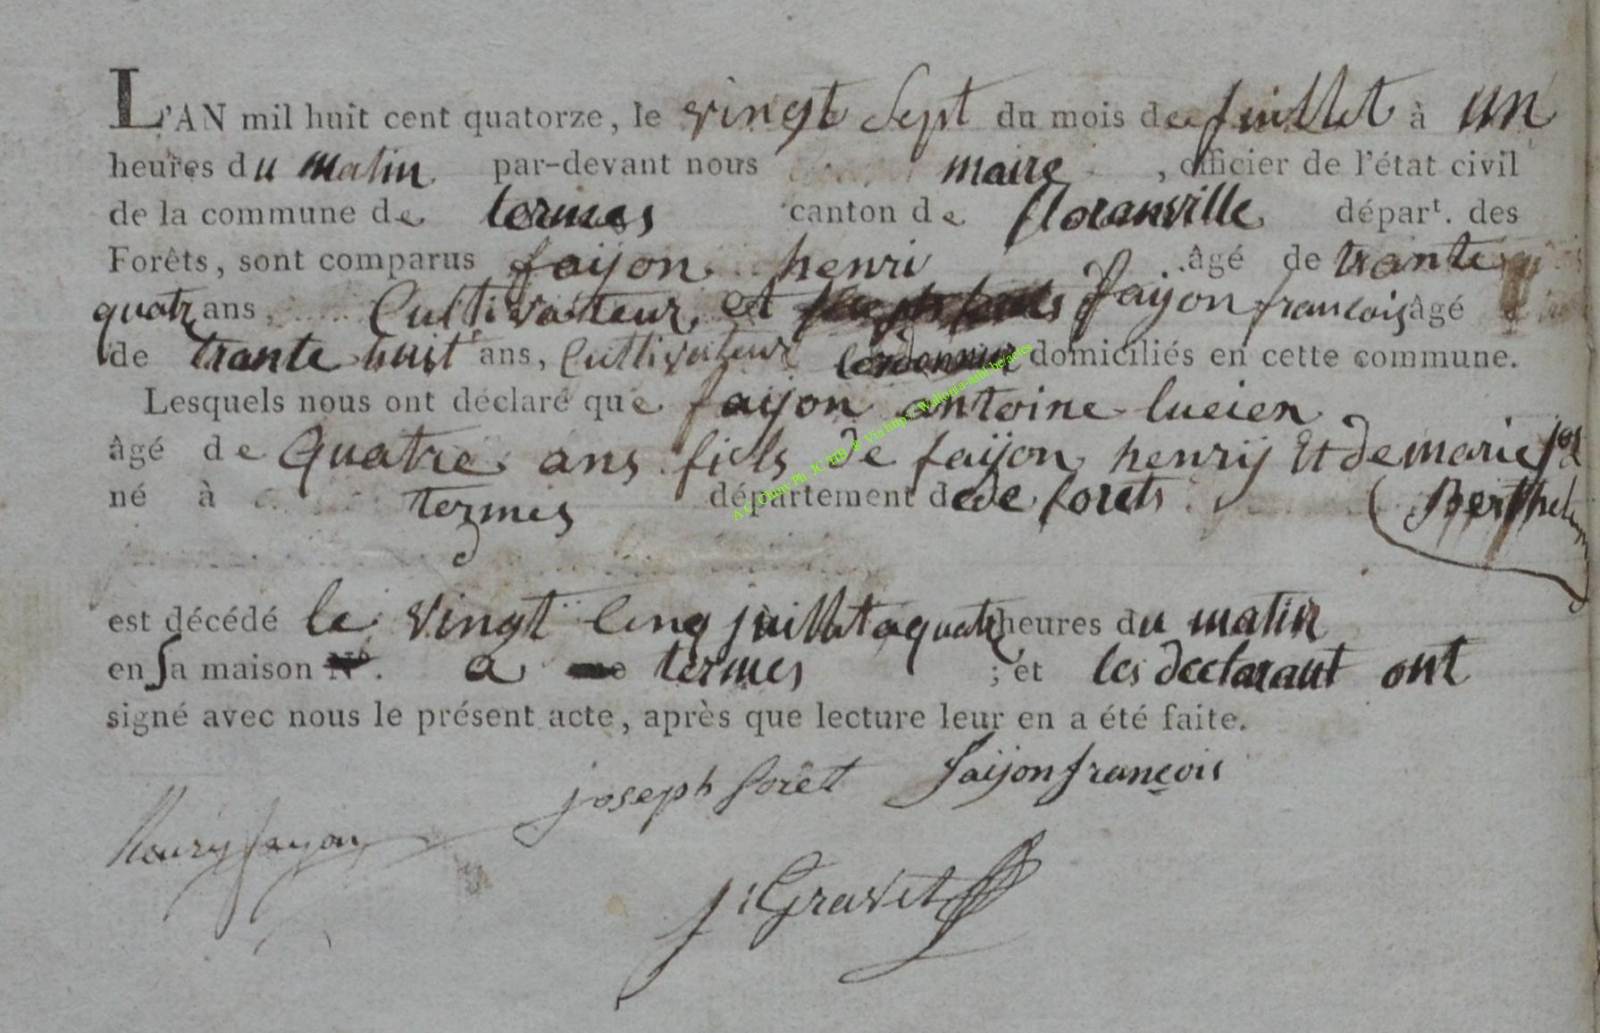 L'AN mil huit cent quatorze, le vingt Sept du mois de juillet à un
heures du matin par-devant nous maire , officier de l'état civil
de la commune de termes canton de floranville départ. des
Forêts, sont comparus faijon henri âgé de trante
quatr ans, Cultivateur, et faijon francois âgé
de trante huit ans, Cultivateur cordonnier domiciliés en cette commune.
Lesquels nous ont déclaré que faijon antoine lucien
âgé de quatre ans fiels de faijon henrij Et de marie jos
né à termes département de de forets Berthel
est décédé le vingt Cinq juillet a quatr heures du matin
en sa maison N°. a termes ; et les declarant ont
signé avec nous le présent acte, après que lecture leur en a été faite.
joseph forêt faijon françois
henrij fayon
j: Gravet